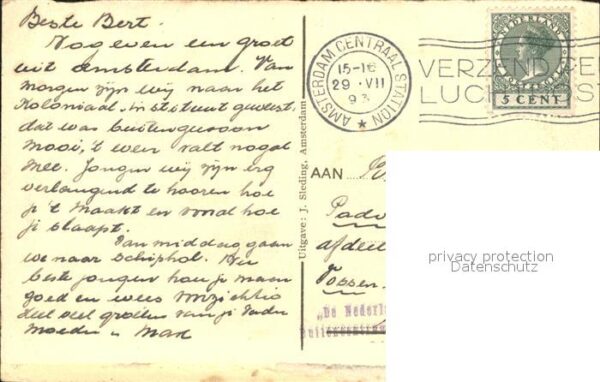 Beste Bert.
Nog even een groet
uit Amsterdam. Van
morgen zijn wij naar het
Koloniaal-instituut geweest,
dat was buitengewoon
mooi, 't weer valt nogal
mee. Jongen wij zijn erg
verlangend te hooren hoe
je 't maakt en vond hoe
je slaapt.
Van middag gaan
we naar Schiphol. Nu
beste jongen hou je maar
goed en wees voorzichtig
veel veel groeten van je Vader
Moeder en
Uitgave: J. Sleding, Amsterdam
AMSTERDAM CENTRAAL STATION
15-16
29 · VII
193
VERZEND
LUCH POS
NEDERLAND
5 CENT
AAN
Pado
afdeel
Vossen.
"De Nederl
Buitencentrum
privacy protection
Datenschutz